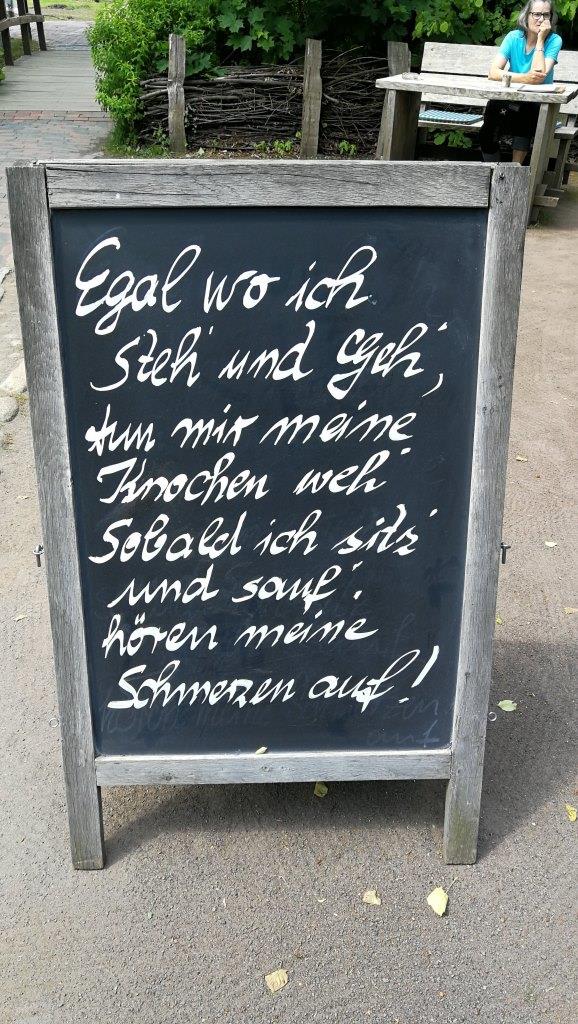 Egal wo ich
Steh' und Geh',
tun mir meine
Knochen weh'
Sobald ich sitz'
und sauf'.
hören meine
Schmerzen auf!